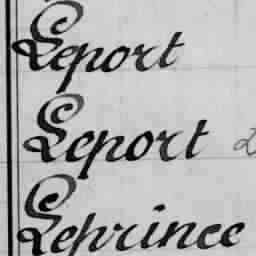 Leport
Leport
Leprince